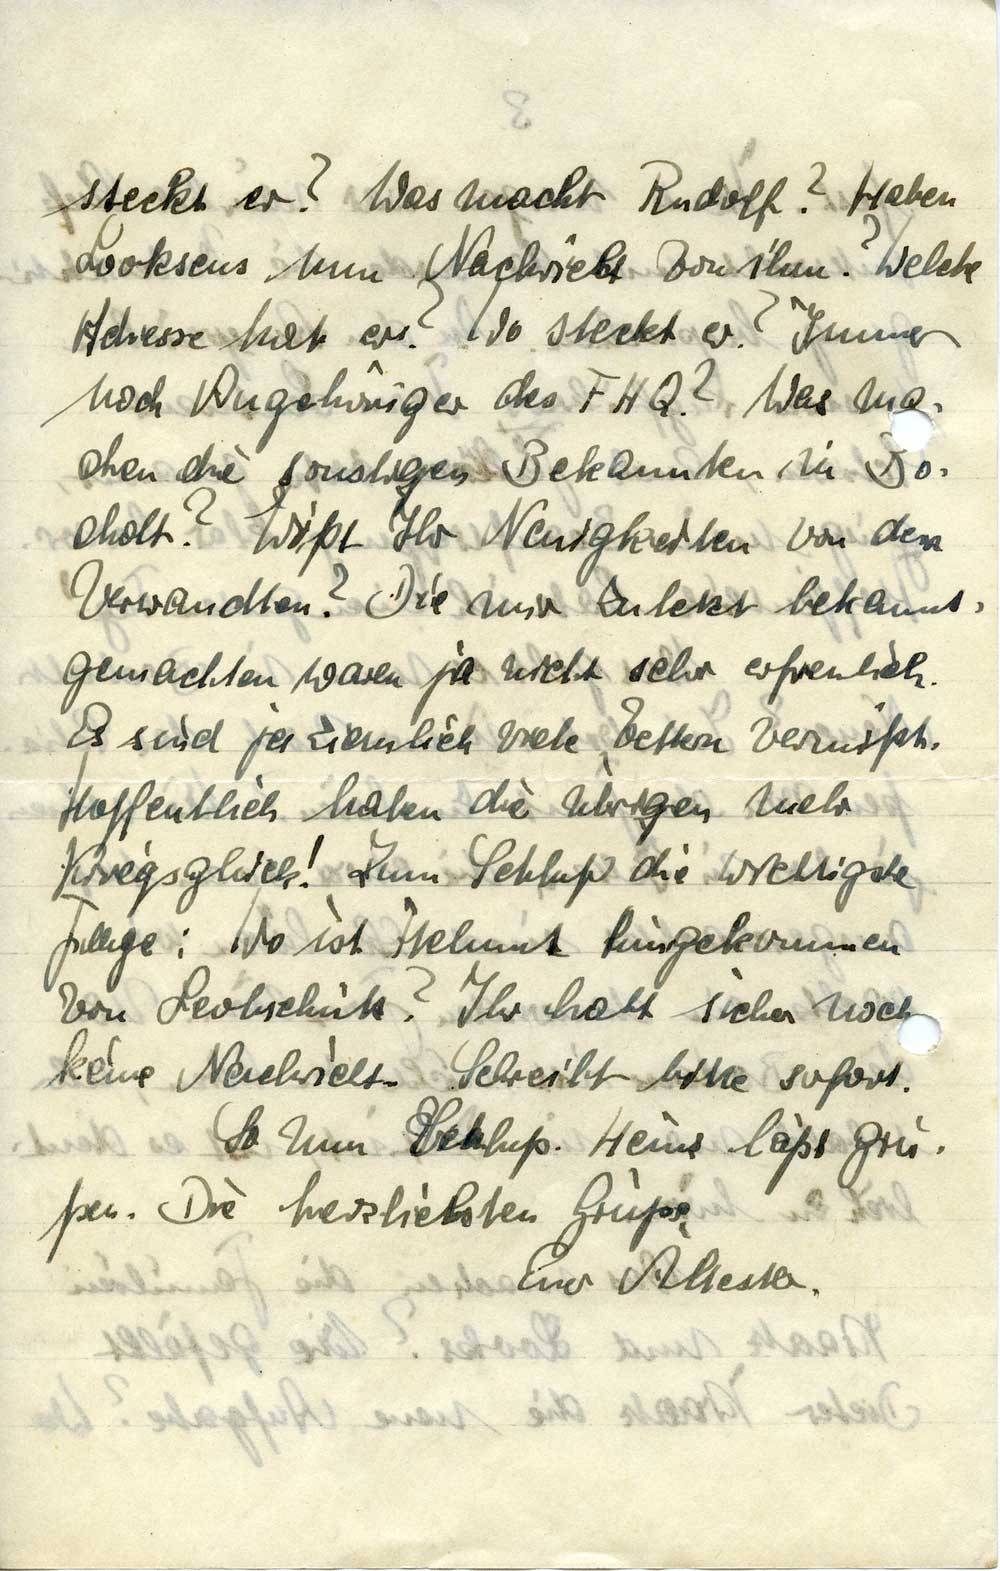 steckt er? Was macht Rudolf? Haben
Looksens nun Nachricht von ihm? Welche
Adresse hat er? Wo steckt er? Immer
noch Angehöriger des FHQ? Was ma-
chen die sonstigen Bekannten in Bo-
cholt? Wißt Ihr Neuigkeiten von den
Verwandten? Die mir zuletzt bekannt-
gemachten waren ja nicht sehr erfreulich.
Es sind ja ziemlich viele Vettern vermißt.
Hoffentlich haben die übrigen mehr
Kriegsglück! Zum Schluß die wichtigste
Frage: Wo ist Helmut hingekommen
von Leobschütz? Ihr habt sicher noch
keine Nachricht. Schreibt bitte sofort.
So nun Schluß. Heinz läßt grü-
ßen. Die herzlichsten Grüße,
Euer Ältester.